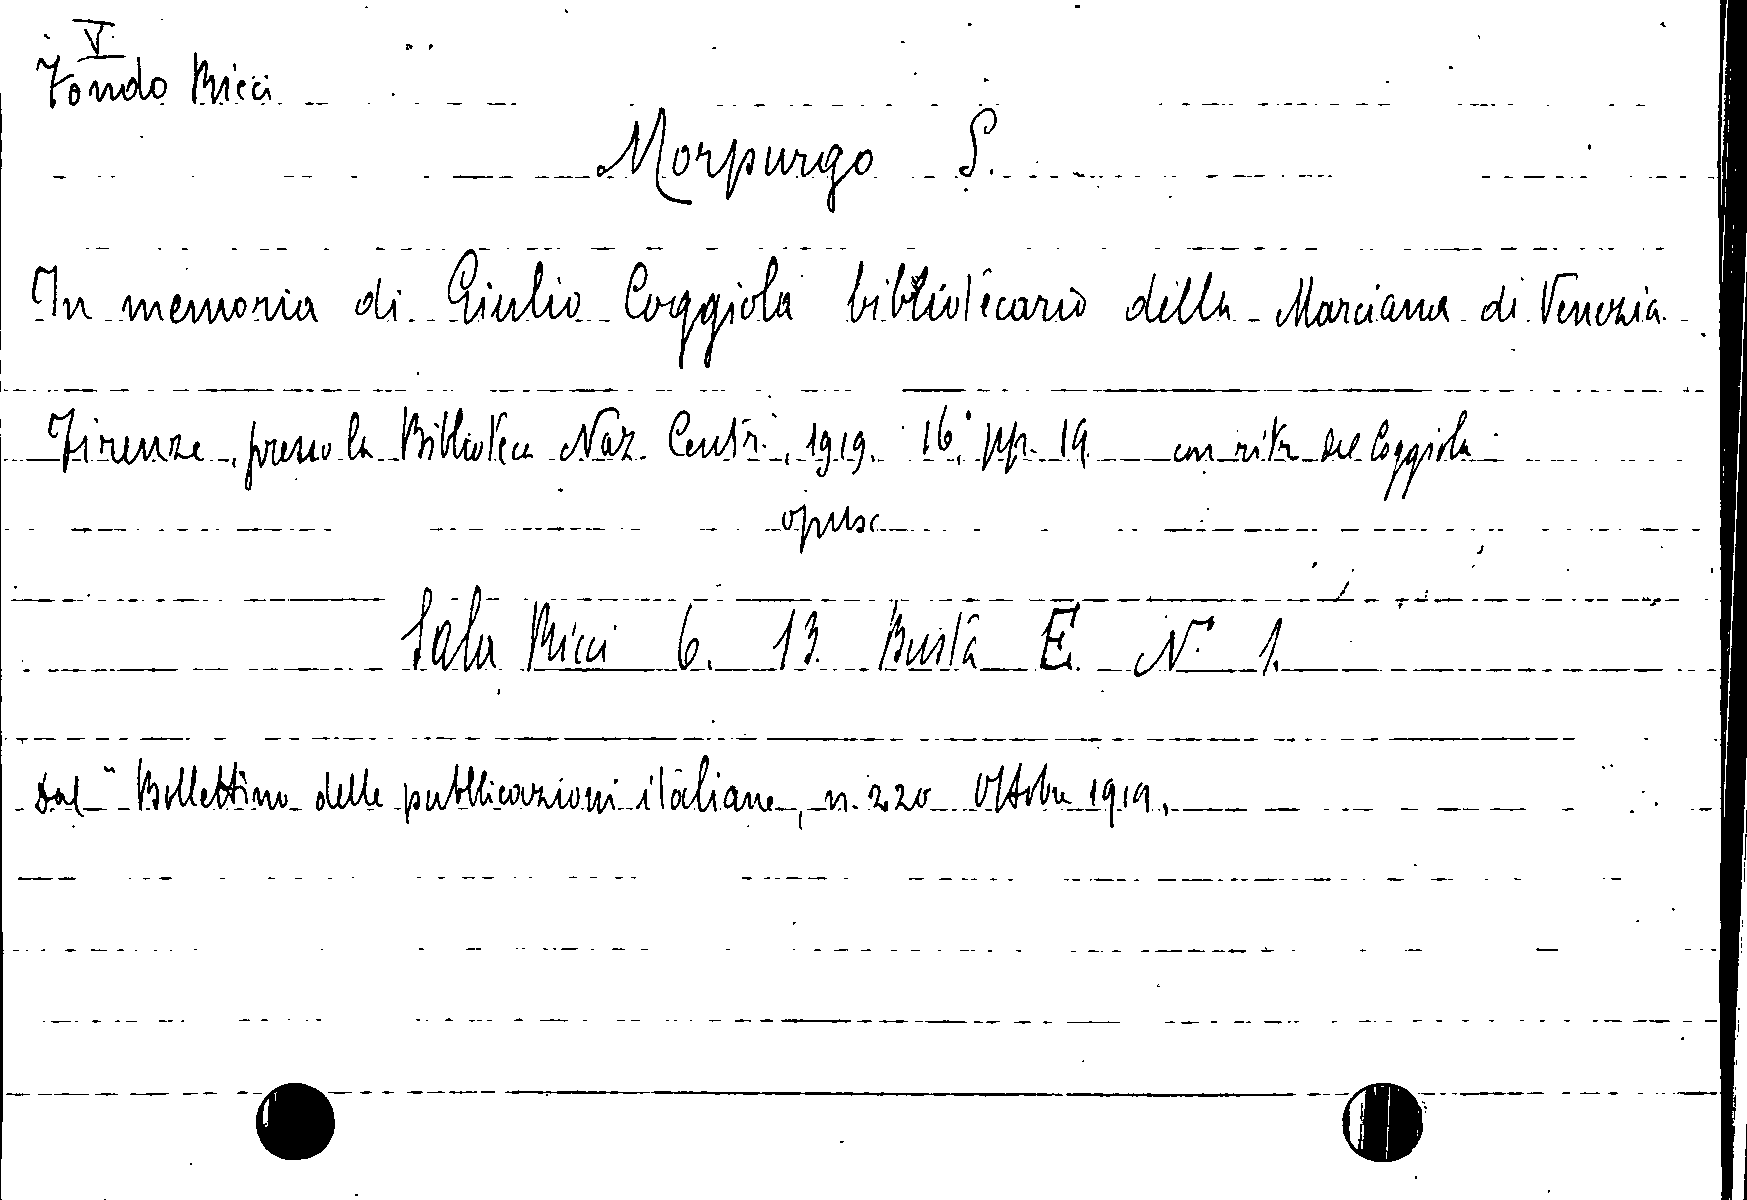 V
Fondo Ricci
Morpurgo S.
In memoria di Giulio Coggiola bibliotecario della Marciana di Venezia
Firenze, presso la Biblioteca Naz. Centr., 1919. 16° pp. 19 con ritr. del Coggiola
opusc
Sala Ricci 6. 13. Busta E. N.° 1.
Dal "Bollettino delle pubblicazioni italiane, n. 220 Ottobre 1919.